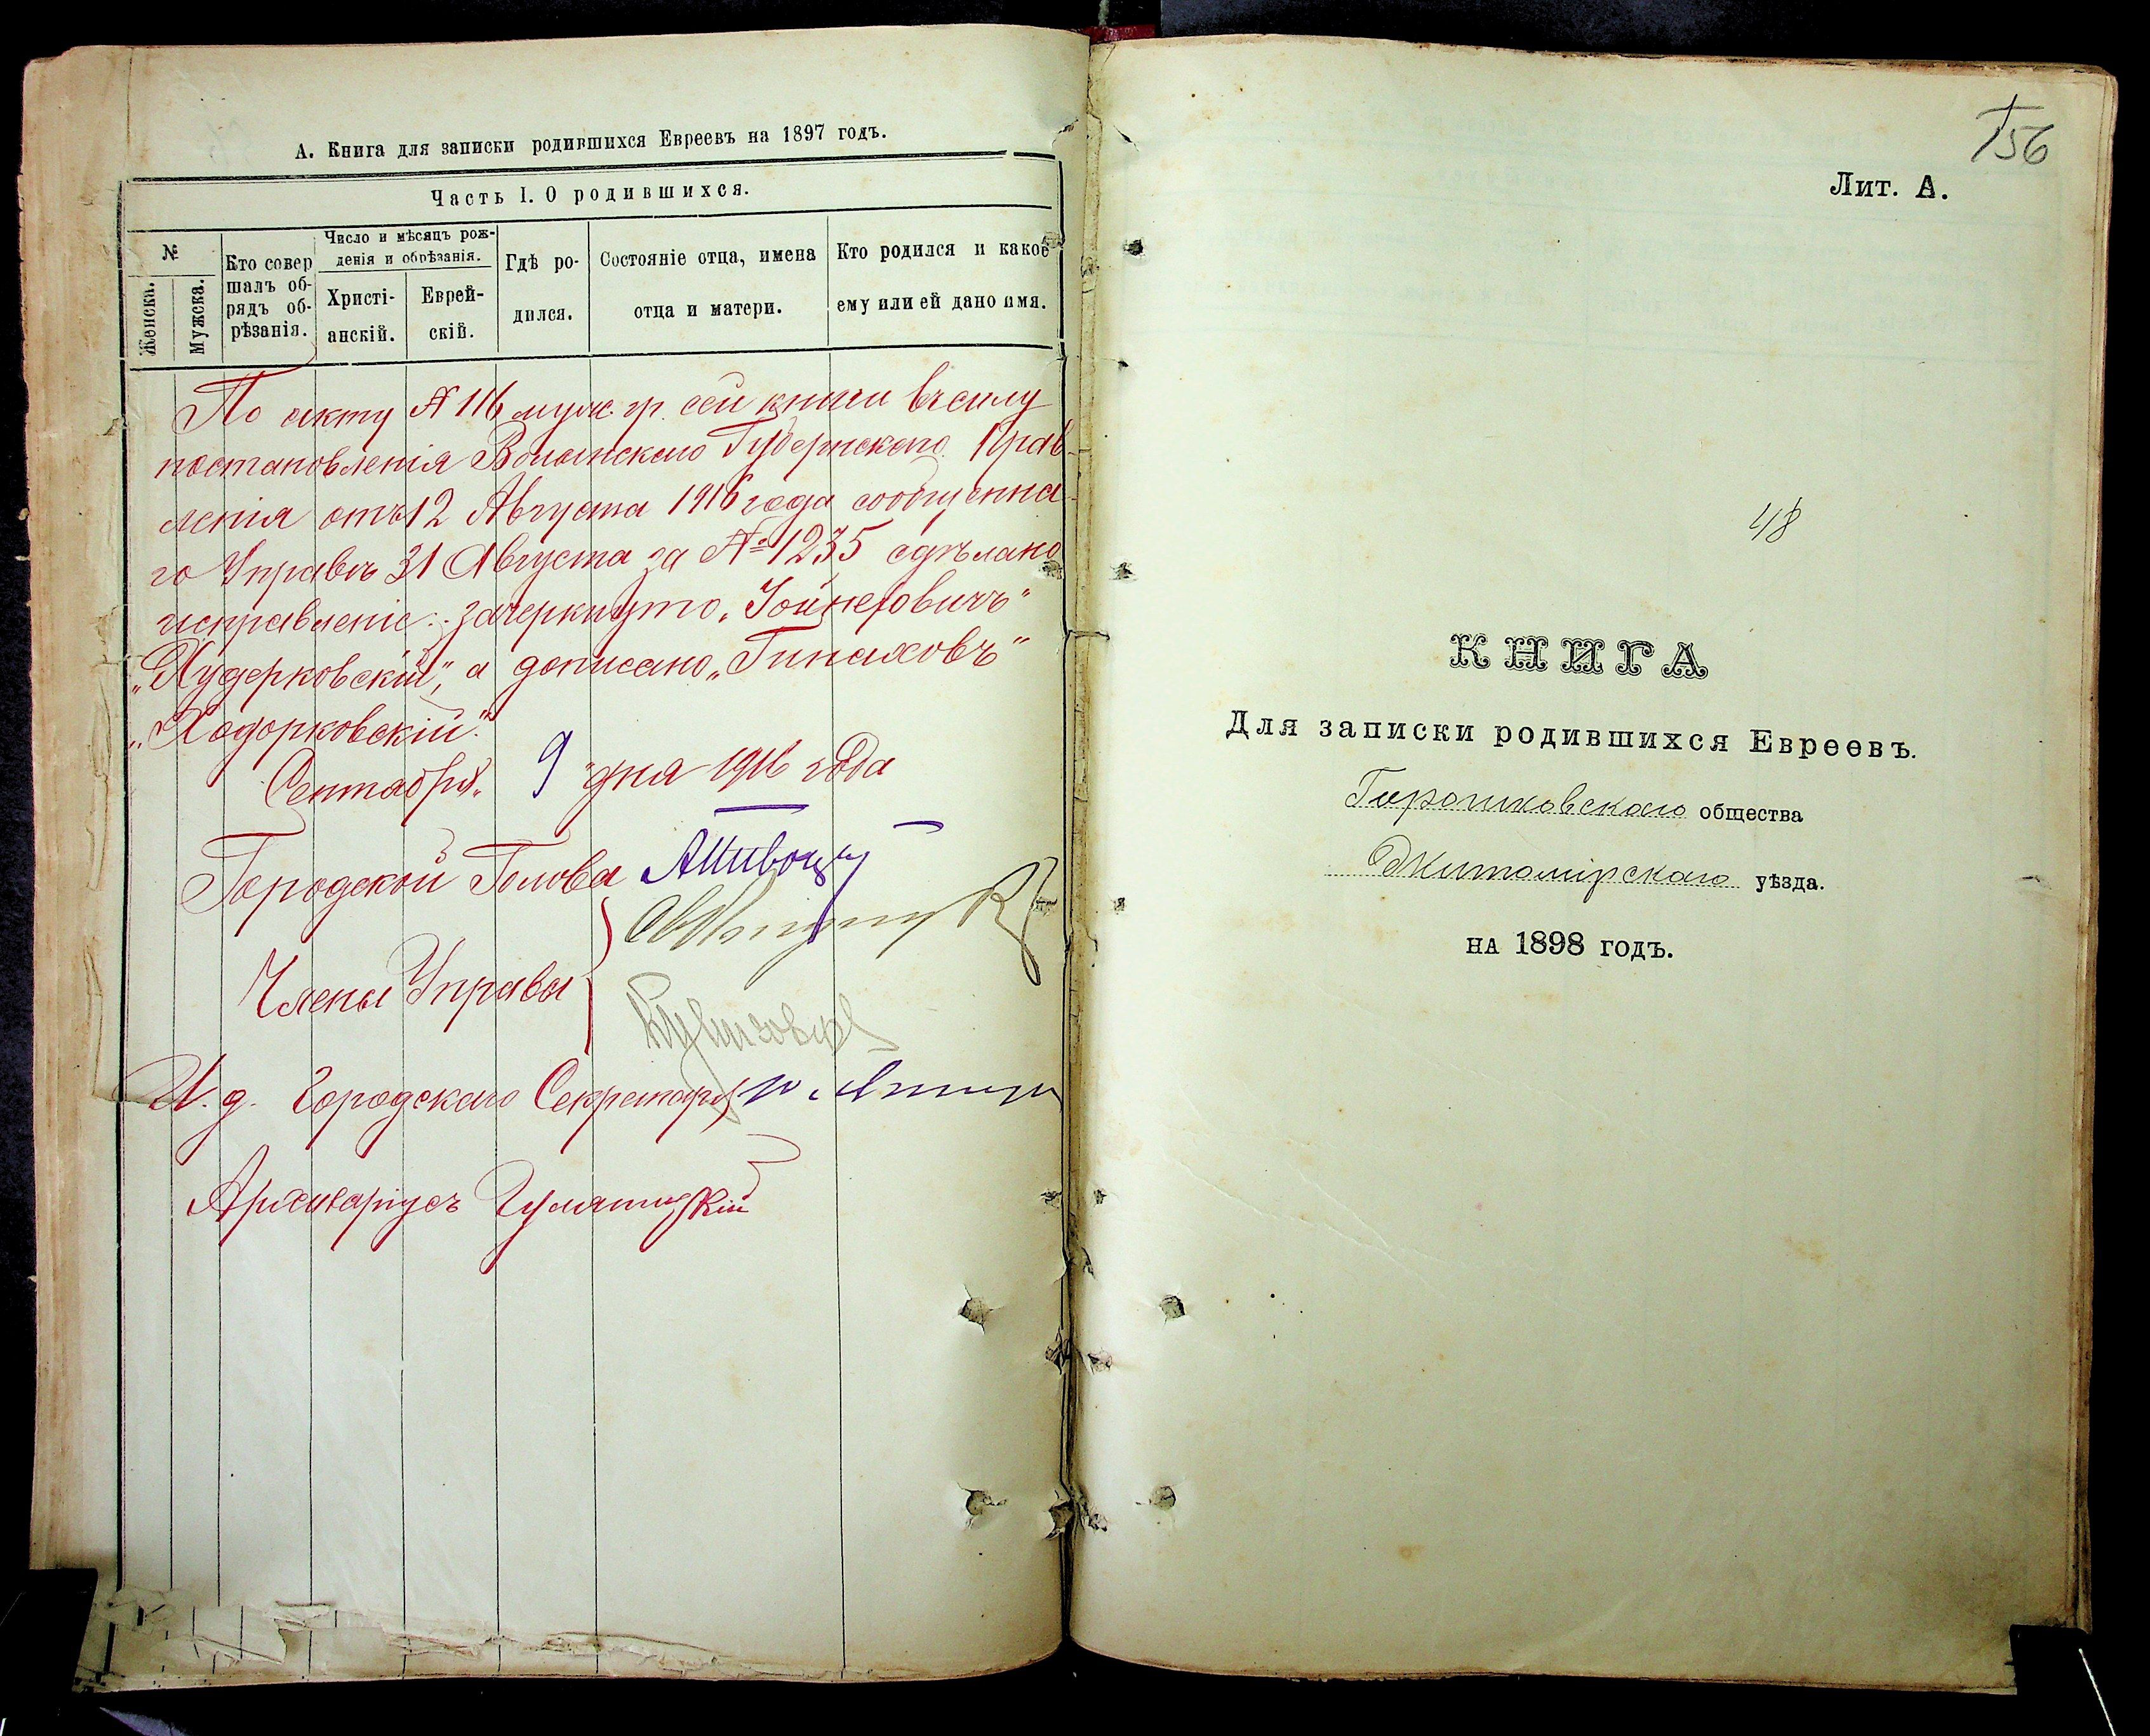 А. Книга для записки родившихся Евреевъ на 1897 годъ.
Часть I. О родившихся.
№
Женска.
Мужска.
Кто совер
шалъ об-
рядъ об-
рѣзанія.
Число и мѣсяцъ рож-
денія и обрѣзанія.
Христі-
анскій.
Еврей-
скій.
Гдѣ ро-
дился.
Состояніе отца, имена
отца и матери.
Кто родился и какое
ему или ей дано имя.
По акту № 116 муж. гр. сей книги въ силу
постановленія Волынскаго Губернскаго Прав-
ленія отъ 12 Августа 1916 года сообщенна-
го Управѣ 31 Августа за № 1235 сдѣлано
исправленіе: зачеркнуто
а дописано
„Ходорковскій“.
Сентября 9 дня 1916 года
Городской Голова
Члены Управы
И. д. Городского Секретаря
Архиваріусъ
156
Лит. А.
48
КНИГА
Для записки родившихся Евреевъ.
Горошковскаго общества
Житомірскаго уѣзда.
на 1898 годъ.